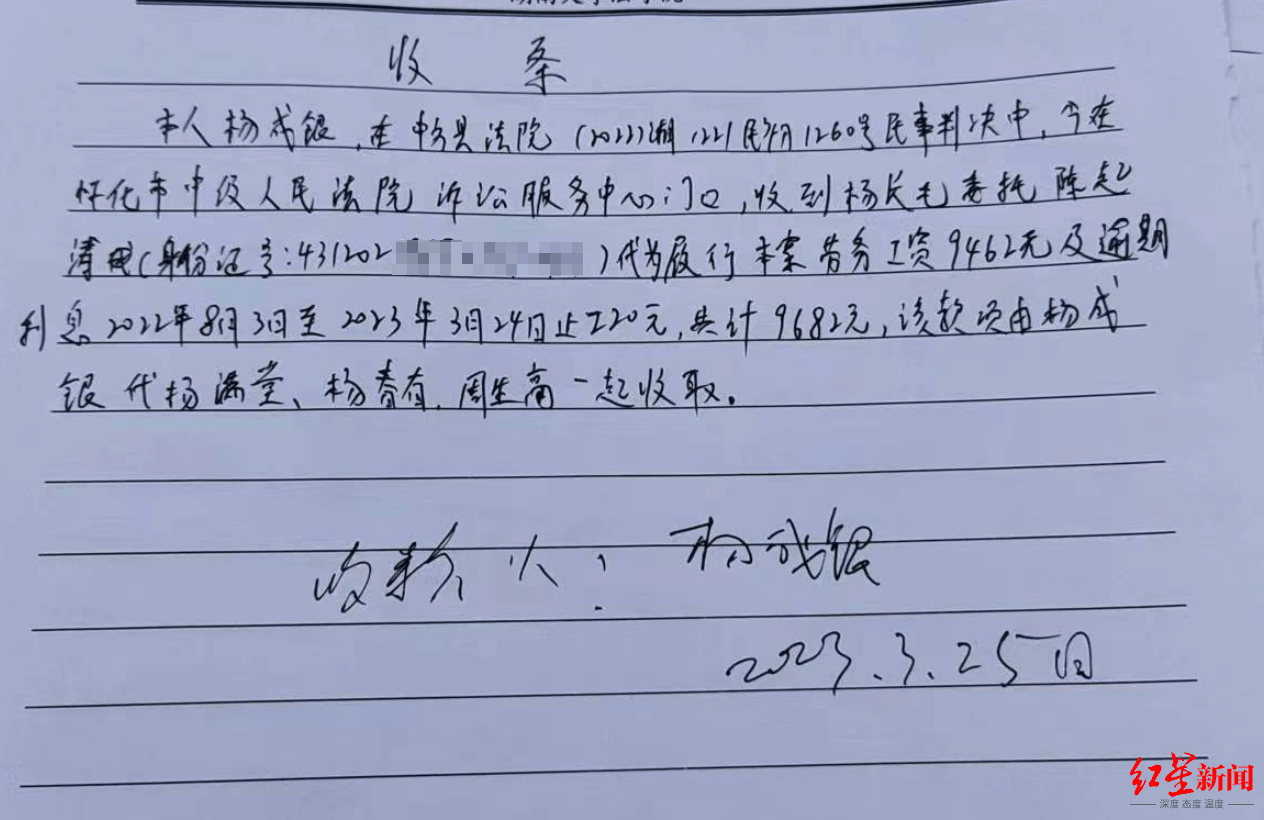 收 条
本人杨成银,在中方县法院(2022)湘1221民初1260号民事判决中,今在
怀化市中级人民法院诉讼服务中心门口,收到杨长毛委托陈起
清(身份证号:431202)代为履行本案劳务工资9462元及逾期
利息2022年8月3日至2023年3月24日止220元,共计9682元,该款项由杨成
银代杨满堂、杨春有、周生高一起收取。
收款人:杨成银
2023.3.25日
红星新闻
深度 态度 温度